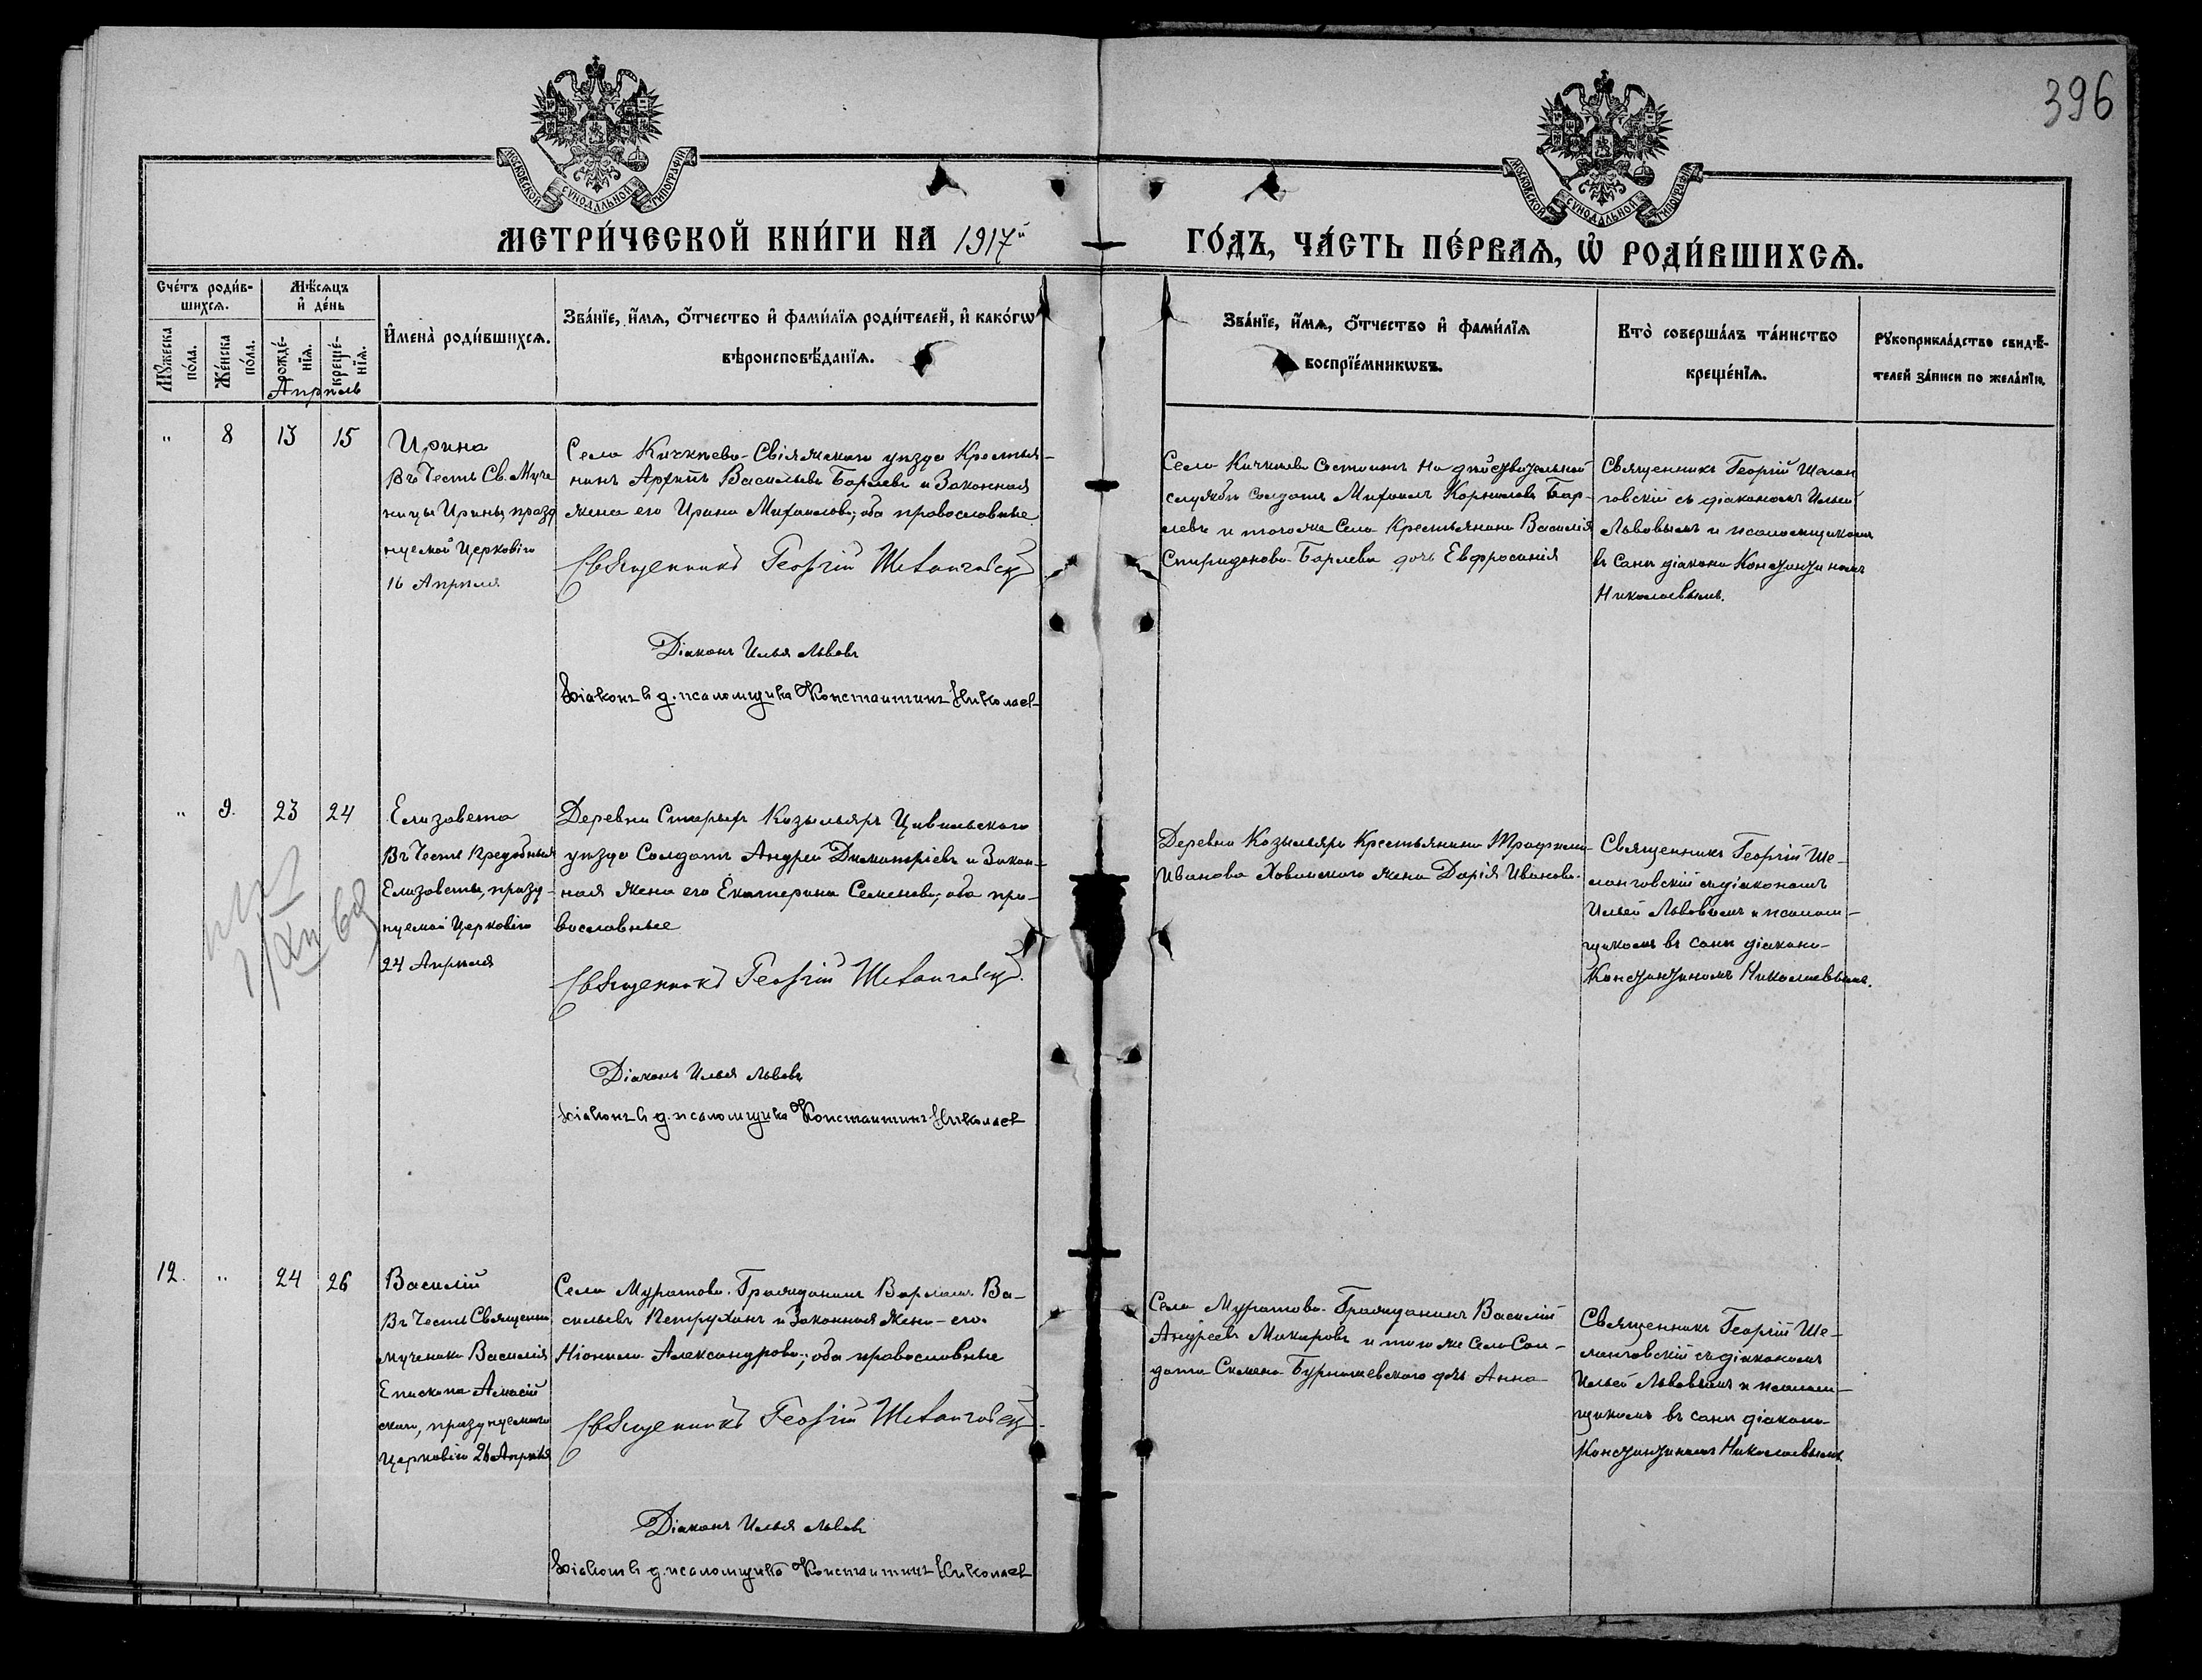 396
МОСКОВСКОЙ СУНОДАЛЬНОЙ ТИПОГРАФІИ
МОСКОВСКОЙ СУНОДАЛЬНОЙ ТИПОГРАФІИ
МЕТРИ́ЧЕСКОЙ КНИ́ГИ НА 1917й
ГО́ДЪ, ЧА́СТЬ ПЕ́РВАѦ, Ѡ РОДИ́ВШИХСѦ.
Сче́тъ роди́в-
шихсѧ.
Мѣ́сѧцъ
и҆ де́нь
Мꙋ́жеска
по́ла.
Же́нска
по́ла.
рожде́-
нїѧ.
креще́-
нїѧ.
Апрѣль
И҆мена̀ роди́вшихсѧ.
Зва́нїе, и҆́мѧ, ѻ҆́тчество и҆ фами́лїѧ роди́телей, и҆ како́гѡ
вѣроисповѣ́данїѧ.
Зва́нїе, и҆́мѧ, ѻ҆́тчество и҆ фами́лїѧ
воспрїе́мникѡвъ.
Кто̀ соверша́лъ та́инство
креще́нїѧ.
Рꙋкоприкла́дство свидѣ́-
телей за́писи по жела́нїю.
" 8 13 15
Ирина
Въ Честь Св. Муче
ницы Ирины, празд
нуемой Церковію
16 Апрѣля
Села Кичкѣева Свіяжскаго уѣзда Крестья-
нинъ Архипъ Васильевъ Барлевъ и Законная
жена его Ирина Михаилова; оба православные
Священникъ Георгій
Діаконъ Илья Львовъ
Діаконъ в д. псаломщика Константинъ Николаев
Села Кичкѣева Состоитъ На дѣйствительной
службѣ Солдатъ Михаилъ Корниловъ Бар-
левъ и того же Села Крестьянина Василія
Спиридонова Барлева дочь Евфросинія
Священникъ Георгій
говскій съ діакономъ Ильей
Львовымъ и псаломщикомъ
въ Санѣ діакона Константиномъ
Николаевымъ.
" 9. 23 24
Елизавета
Въ Честь Преподобныя
Елизаветы, празд-
нуемой Церковію
24 Апрѣля
Деревни Старыхъ Козыльяръ Цивильскаго
уѣзда Солдатъ Андрей Димитріевъ и Закон-
ная жена его Екатерина Семенова; оба пра-
вославные
Священникъ Георгій
Діаконъ Илья Львовъ
Діаконъ в д. псаломщика Константинъ Николаев
Деревни Козыльяръ Крестьянина Трофима
Иванова Хованского жена Дарія Иванова.
Священникъ Георгій Ше-
говскій съ діакономъ
Ильей Львовымъ и псалом-
щикомъ въ санѣ діакона
Константиномъ Николаевымъ.
12. " 24 26
Василій
Въ Честь Священно
мученика Василія
Епископа Амасій
скаго, празднуемаго
Церковію 26 Апрѣля
Села Муратова Гражданинъ Варлам Ва-
сильевъ Петрухинъ и Законная Жена его
Ніонила Александрова; оба православные
Священникъ Георгій
Діаконъ Илья Львов
Діаконъ в д. псаломщика Константинъ Николаев
Села Муратова Гражданинъ Василій
Андреевъ Макаровъ и того же Села Сол-
дата Семена Бурнашевского дочь Анна
Священникъ Георгій Ше-
говскій съ діакономъ
Ильей Львовымъ и псалом-
щикомъ въ санѣ діакона
Константиномъ Николаевымъ